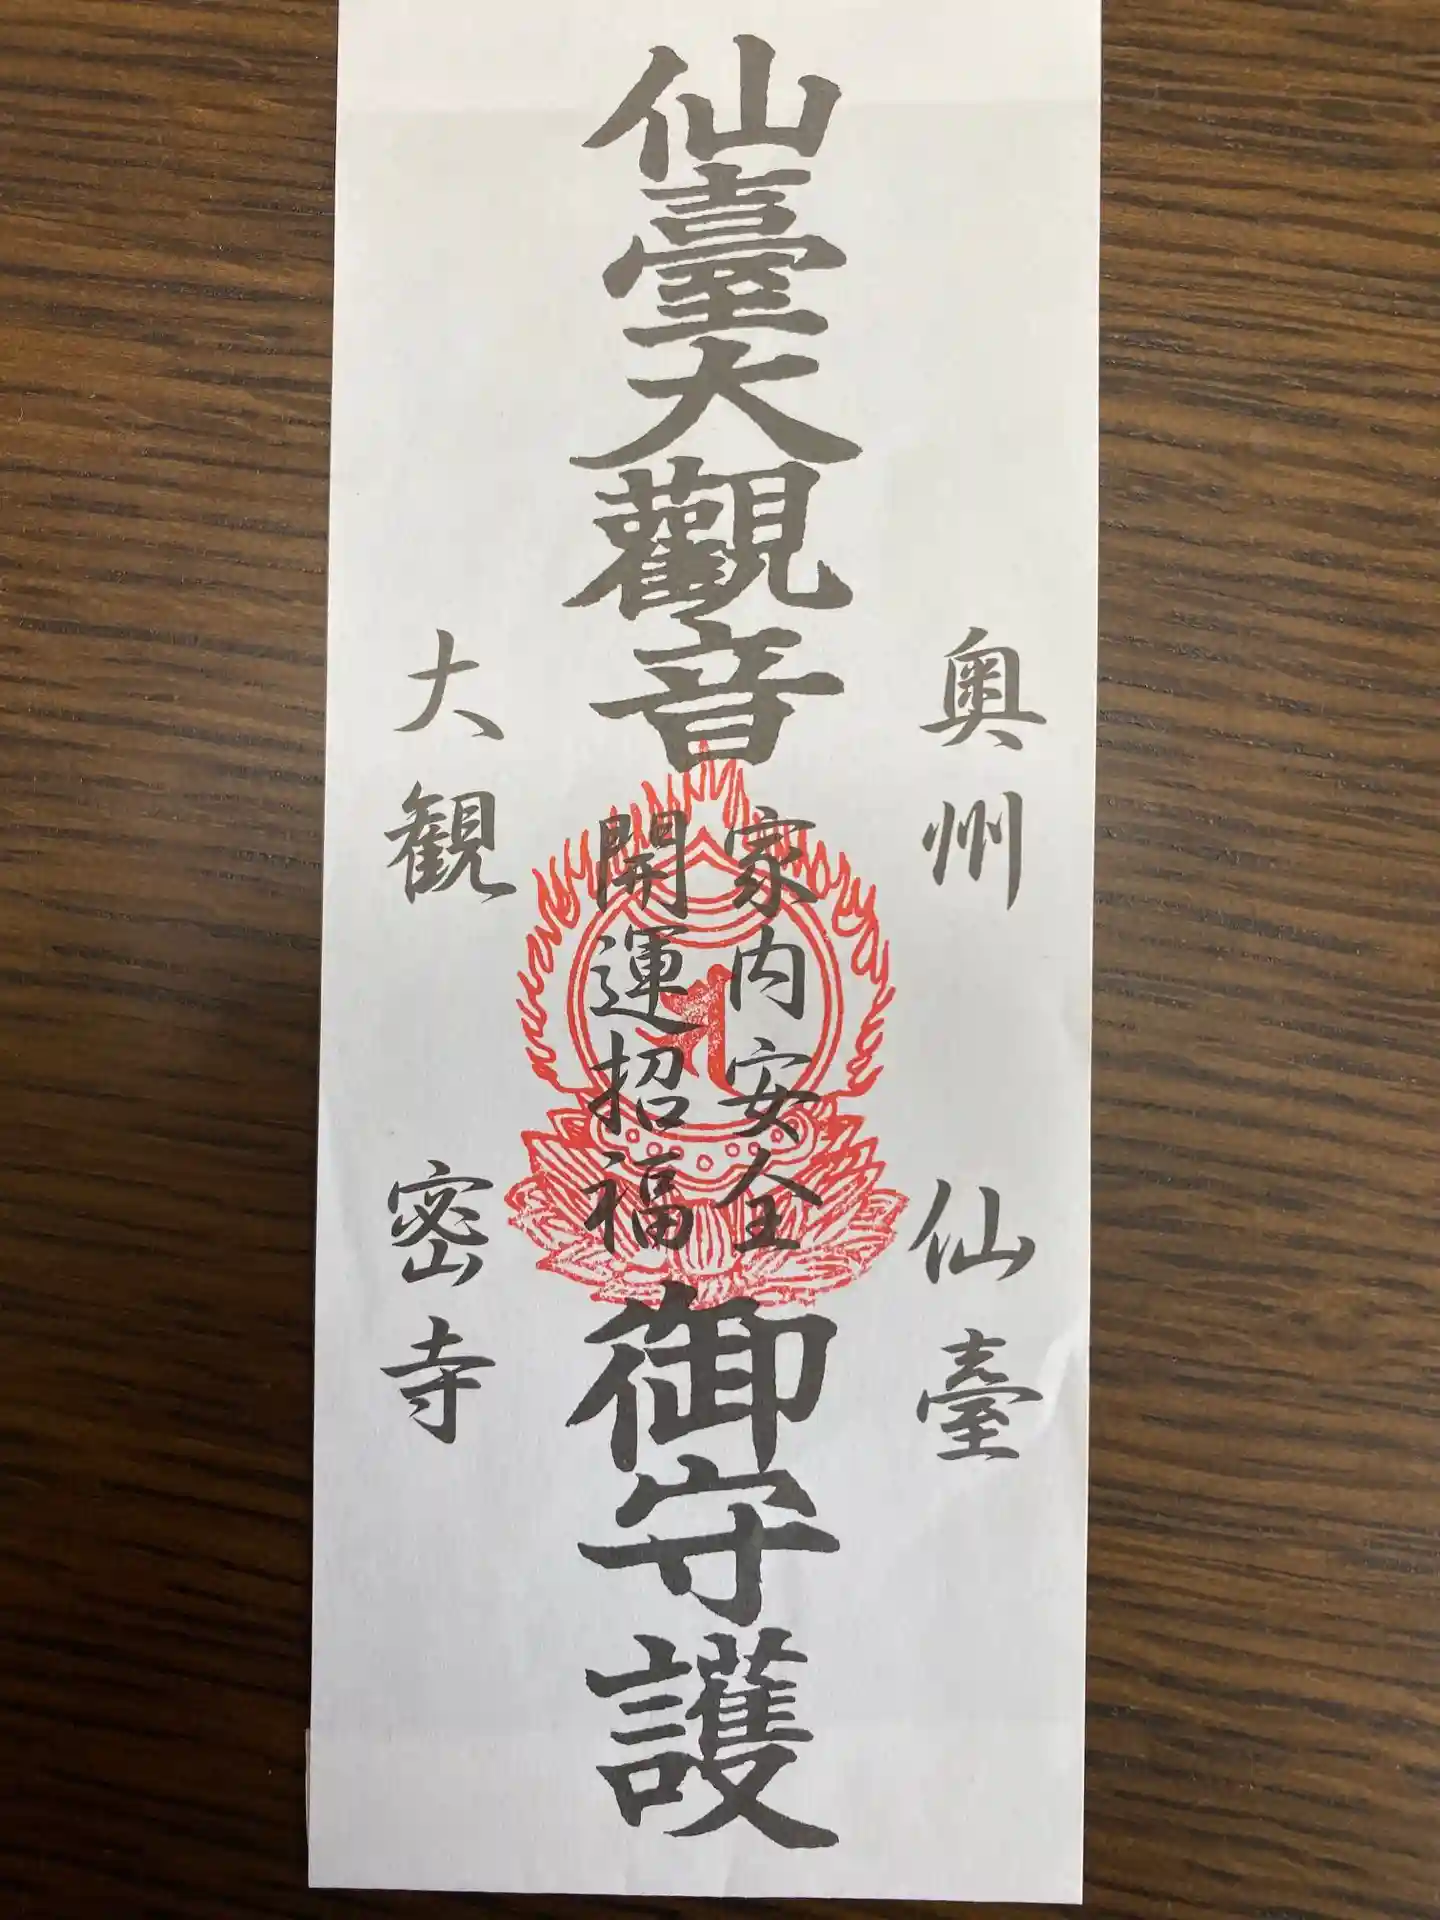 奥州 仙臺
仙臺大觀音
家内安全
開運招福
御守護
大観密寺